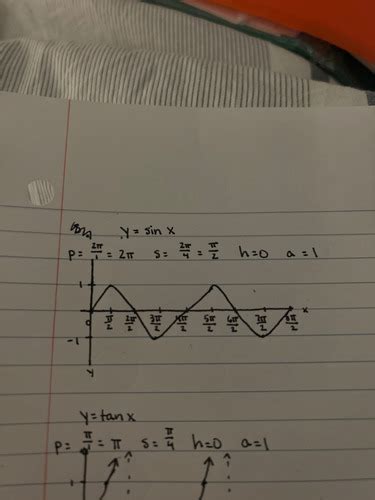 y = sin x
P = 2π/1 = 2π S = 2π/4 = π/2 h=0 a=1
1
0 π/2 2π/2 3π/2 4π/2 5π/2 6π/2 7π/2 8π/2 x
-1
y
y=tan x
P= π/1 = π S= π/4 h=0 a=1
1